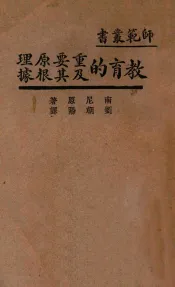 師範叢書
教育的重要原理及其根據
南尼原著
朝陽譯